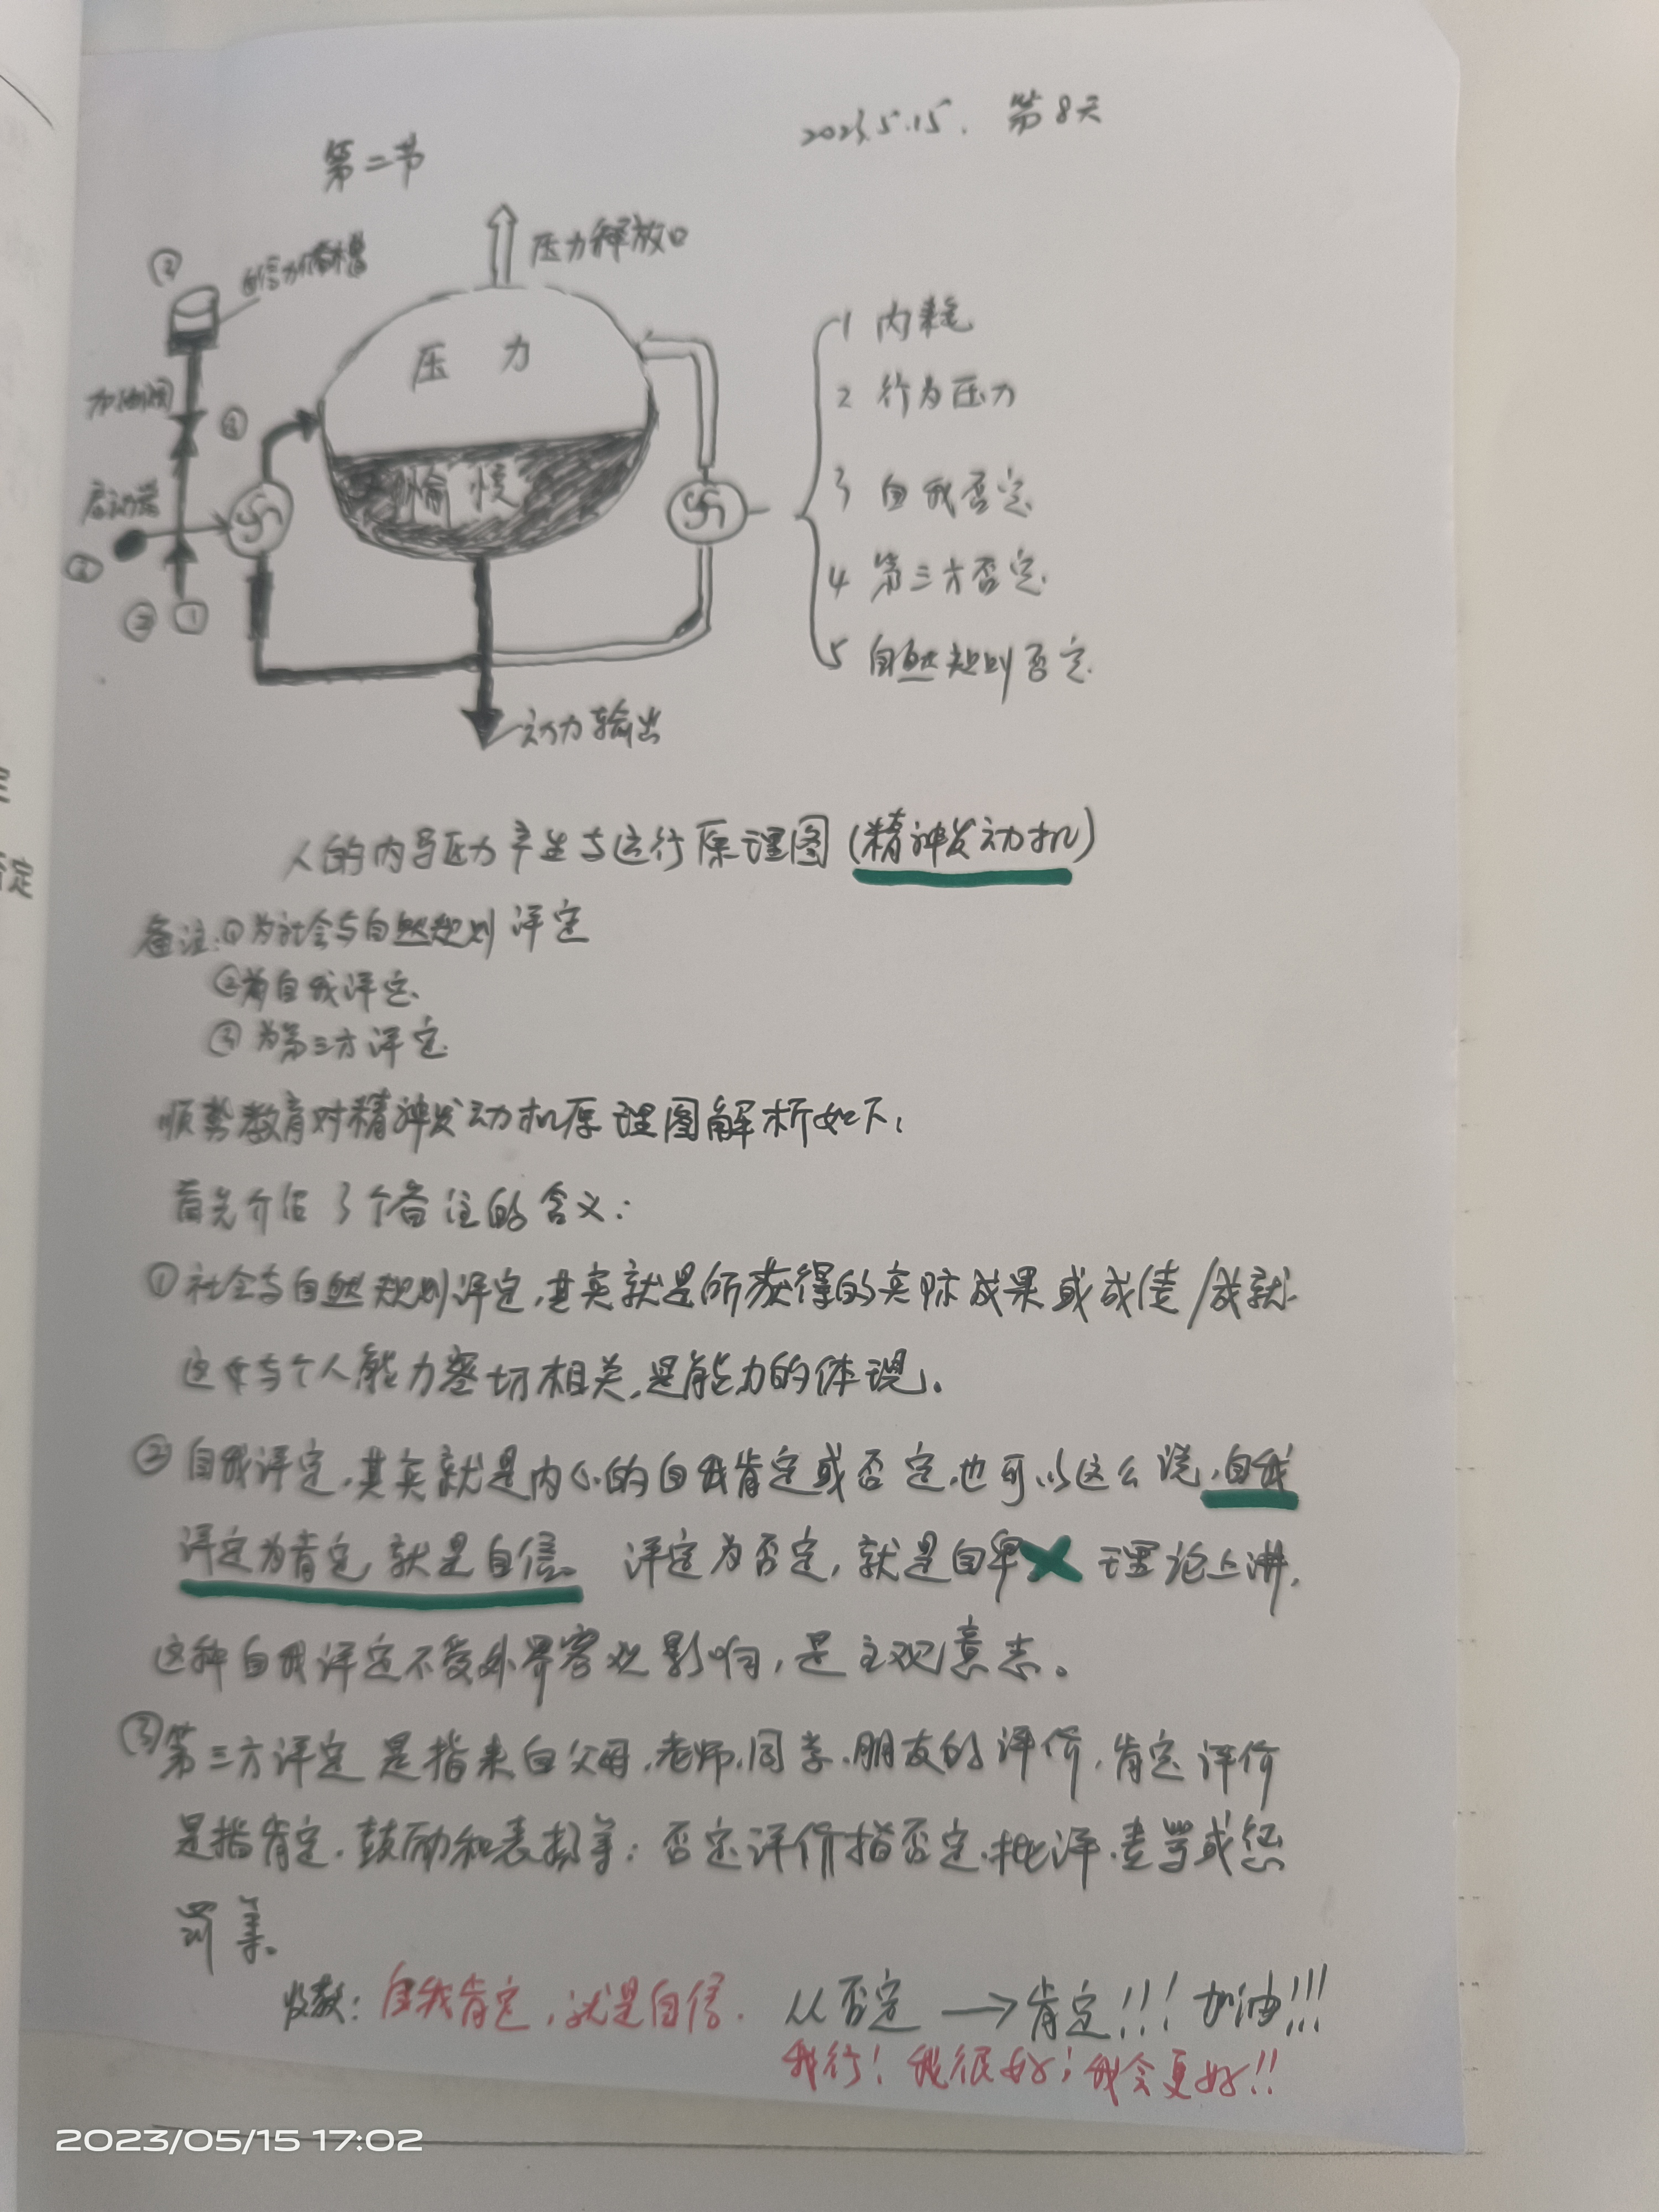 2023.5.15. 第8天
第二节
压力释放口
③
自信力储槽
压 力
加油阀
③
愉悦
启动器
②
②
1
1 内耗
2 行为压力
3 自我否定.
4 第三方否定.
5 自然规则否定.
动力输出
人的内马压力产生与运行原理图(精神发动机)
备注:①为社会与自然规则评定
②为自我评定.
③为第三方评定.
顺势教育对精神发动机原理图解析如下:
首先介绍3个备注的含义:
①社会与自然规则评定,其实就是所获得的实际成果或成绩/成就.
这与个人能力密切相关,是能力的体现。
②自我评定,其实就是内心的自我肯定或否定,也可以这么说,自我
评定为肯定,就是自信。评定为否定,就是自卑 理论上讲,
这种自我评定不受外界客观影响,是主观意志。
③第三方评定是指来自父母、老师、同学、朋友的评价,肯定评价
是指肯定、鼓励和表扬等;否定评价指否定、批评、责骂或惩
罚等。
收教:自我肯定,就是自信. 从否定→肯定!!!加油!!!
我行!我很好!我会更好!!
2023/05/15 17:02